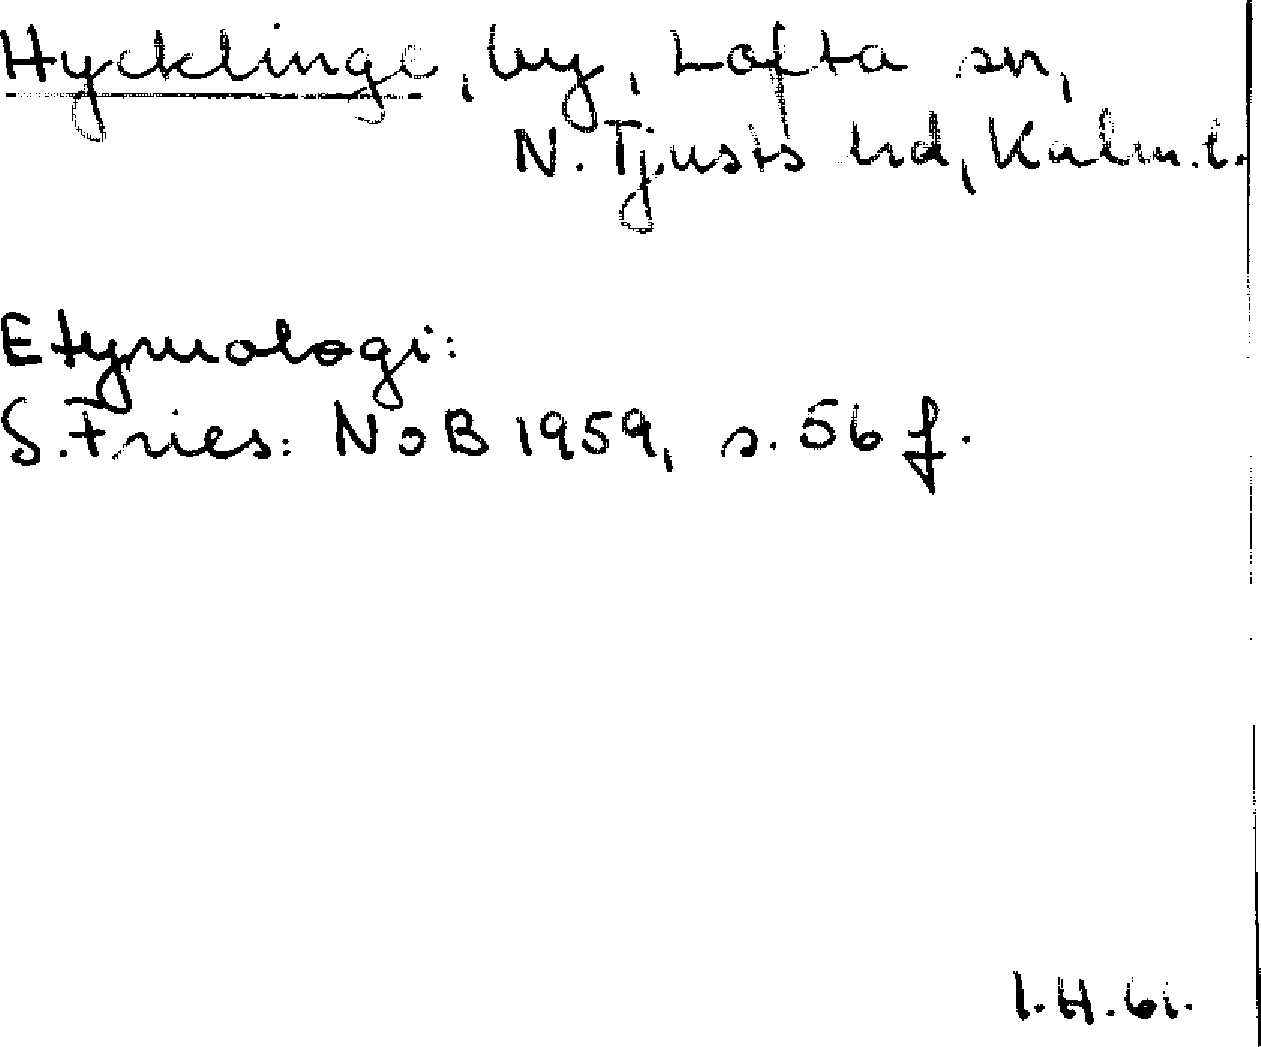 Hycklinge, by, Lofta sn,
N. Tjusts hd, Kalm. l.
Etymologi:
S. Fries: NoB 1959, s. 56 f.
I.H. 61.